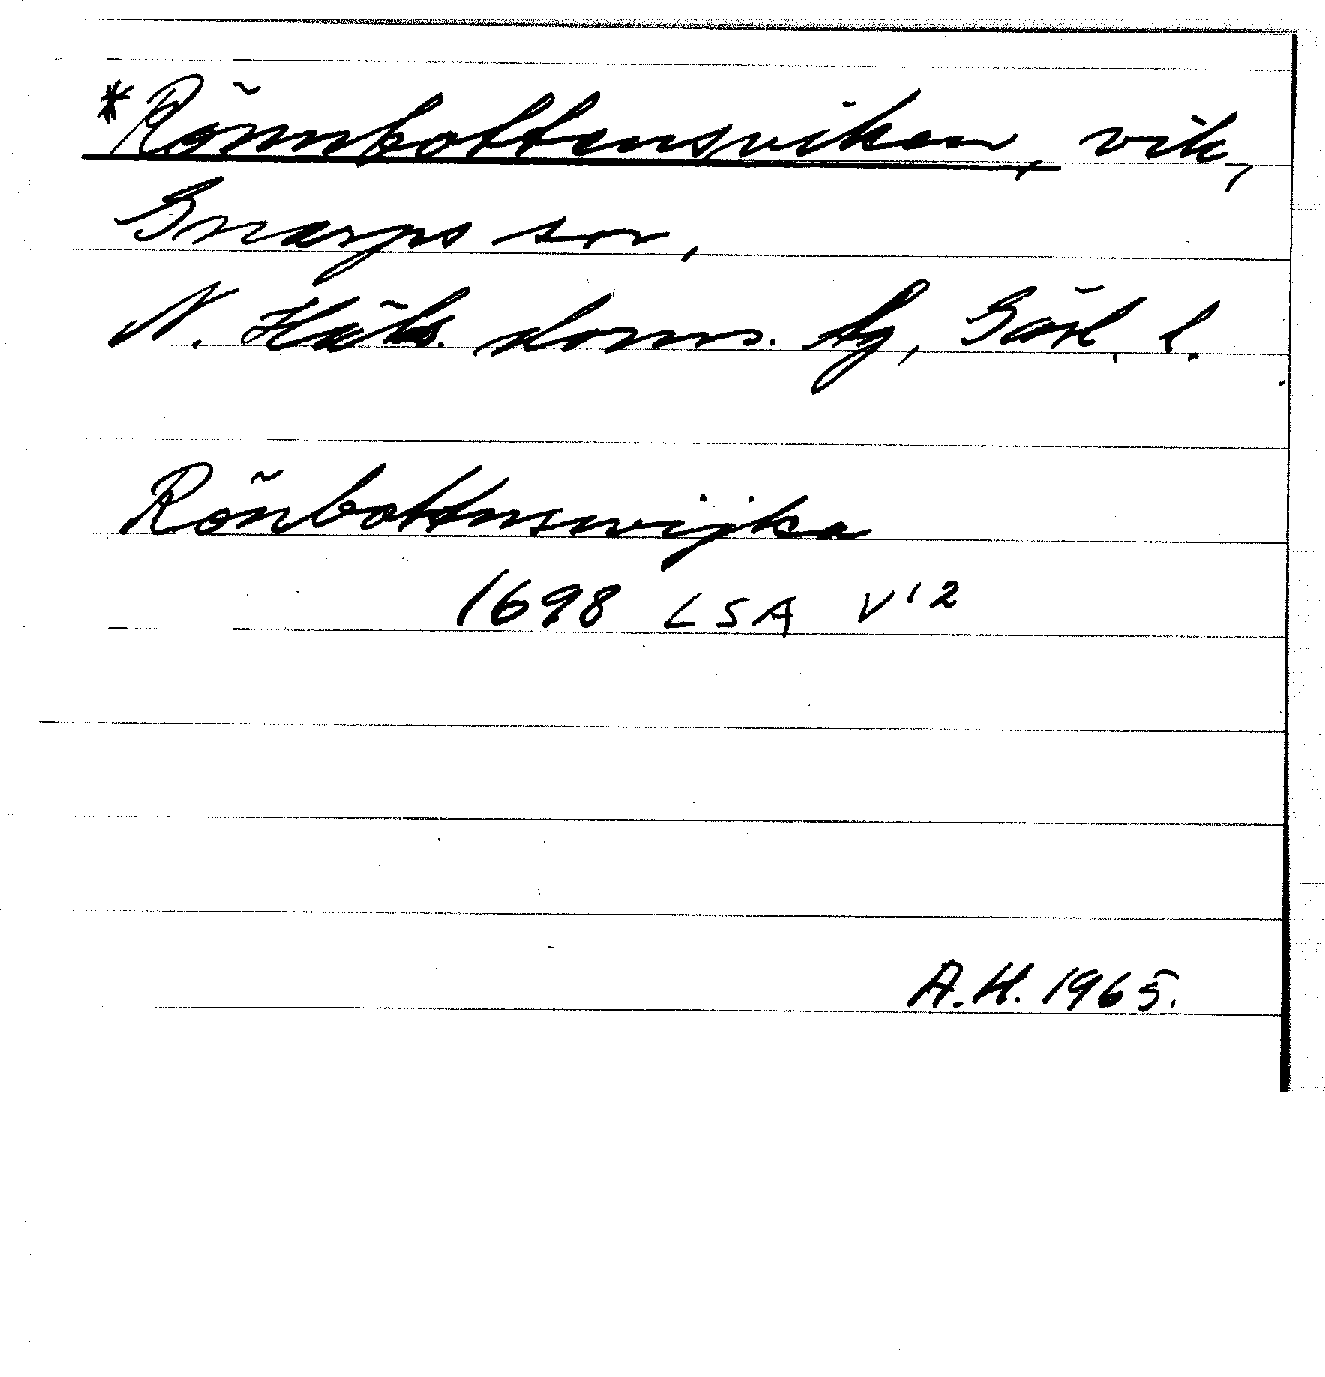 *Rönnbottensviken, vik,
Gnarps sn,
N. Häls. doms. lg, Gävl. l.
Rönbottenswijka
1698 LSA V12
A.H. 1965.